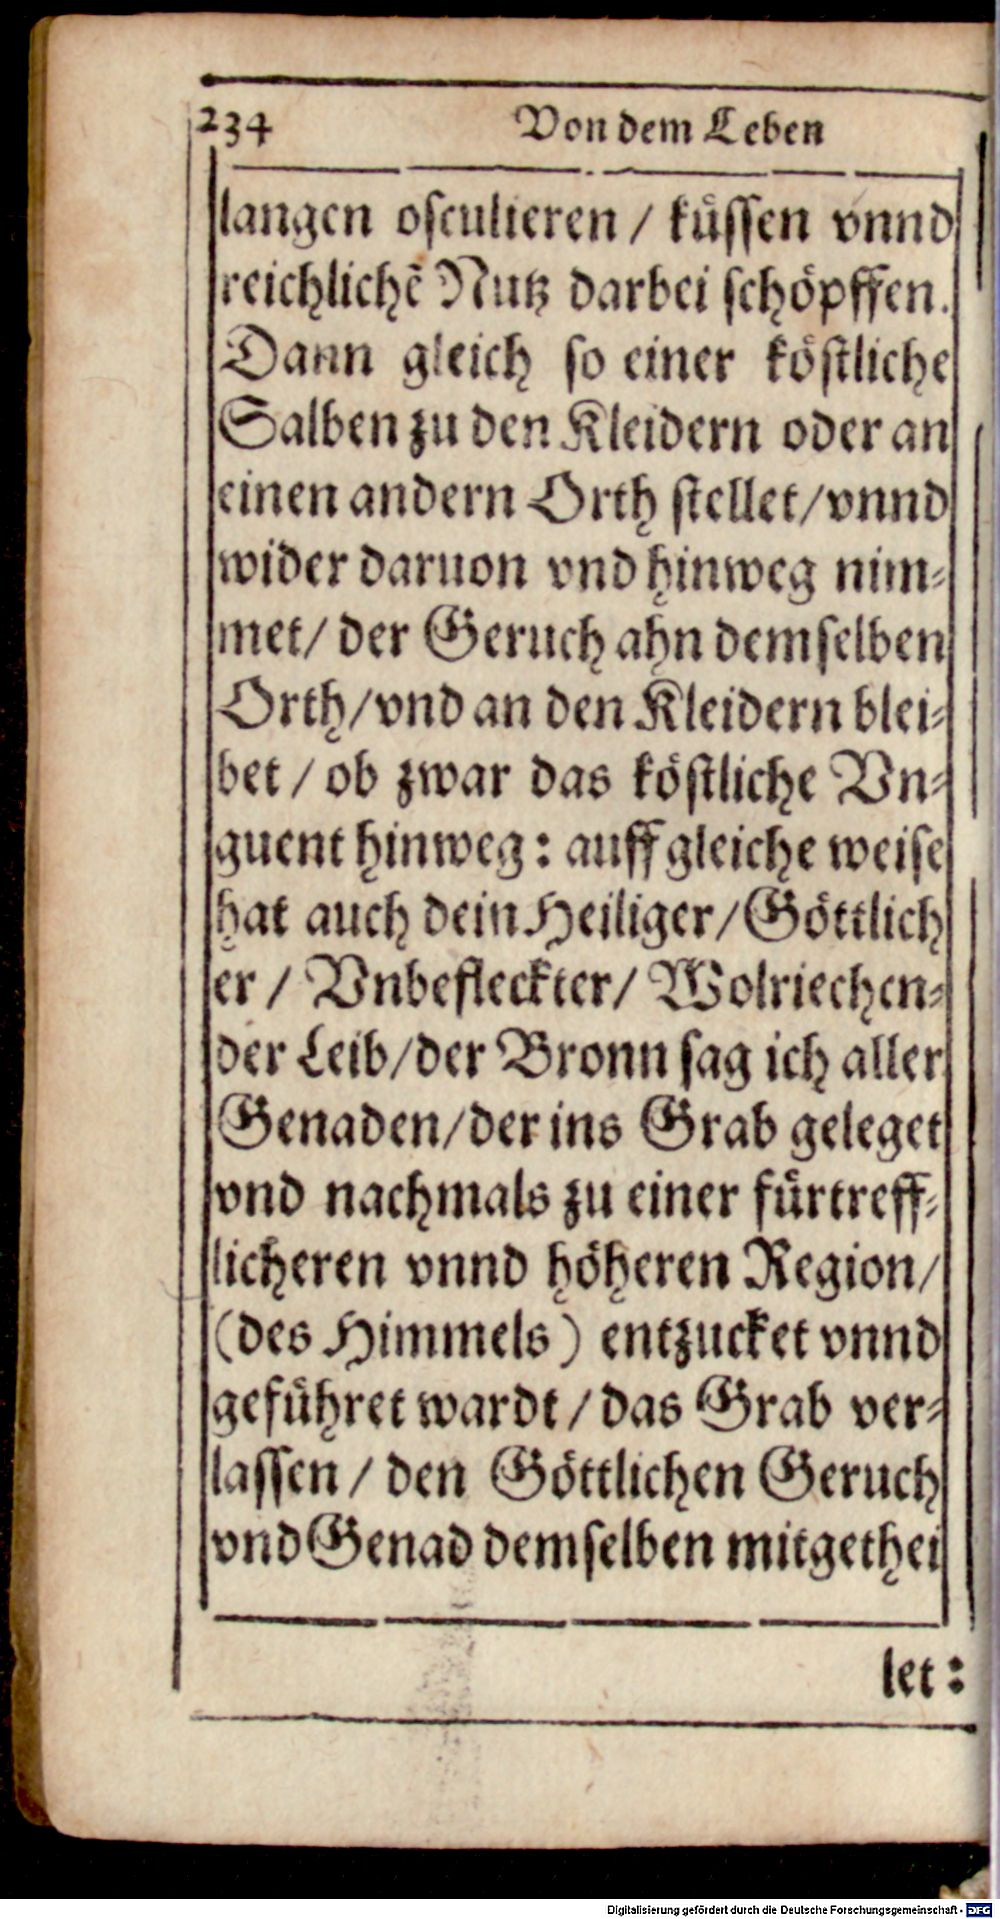 234 Von dem Leben
langen osculieren / küssen vnnd
reichlichẽ Nutz darbei schöpffen.
Dann gleich so einer köstliche
Salben zu den Kleidern oder an
einen andern Orth stellet/vnnd
wider daruon vnd hinweg nim-
met/ der Geruch ahn demselben
Orth/vnd an den Kleidern blei-
bet / ob zwar das köstliche Vn-
guent hinweg: auff gleiche weise
hat auch dein Heiliger/Göttlich
er / Vnbefleckter/ Wolriechen-
der Leib/der Bronn sag ich aller
Genaden/der ins Grab geleget
vnd nachmals zu einer fürtreff-
licheren vnnd höheren Region/
(des Himmels) entzucket vnnd
geführet wardt / das Grab ver-
lassen / den Göttlichen Geruch
vnd Genad demselben mitgethei
let:
Digitalisierung gefördert durch die Deutsche Forschungsgemeinschaft - DFG